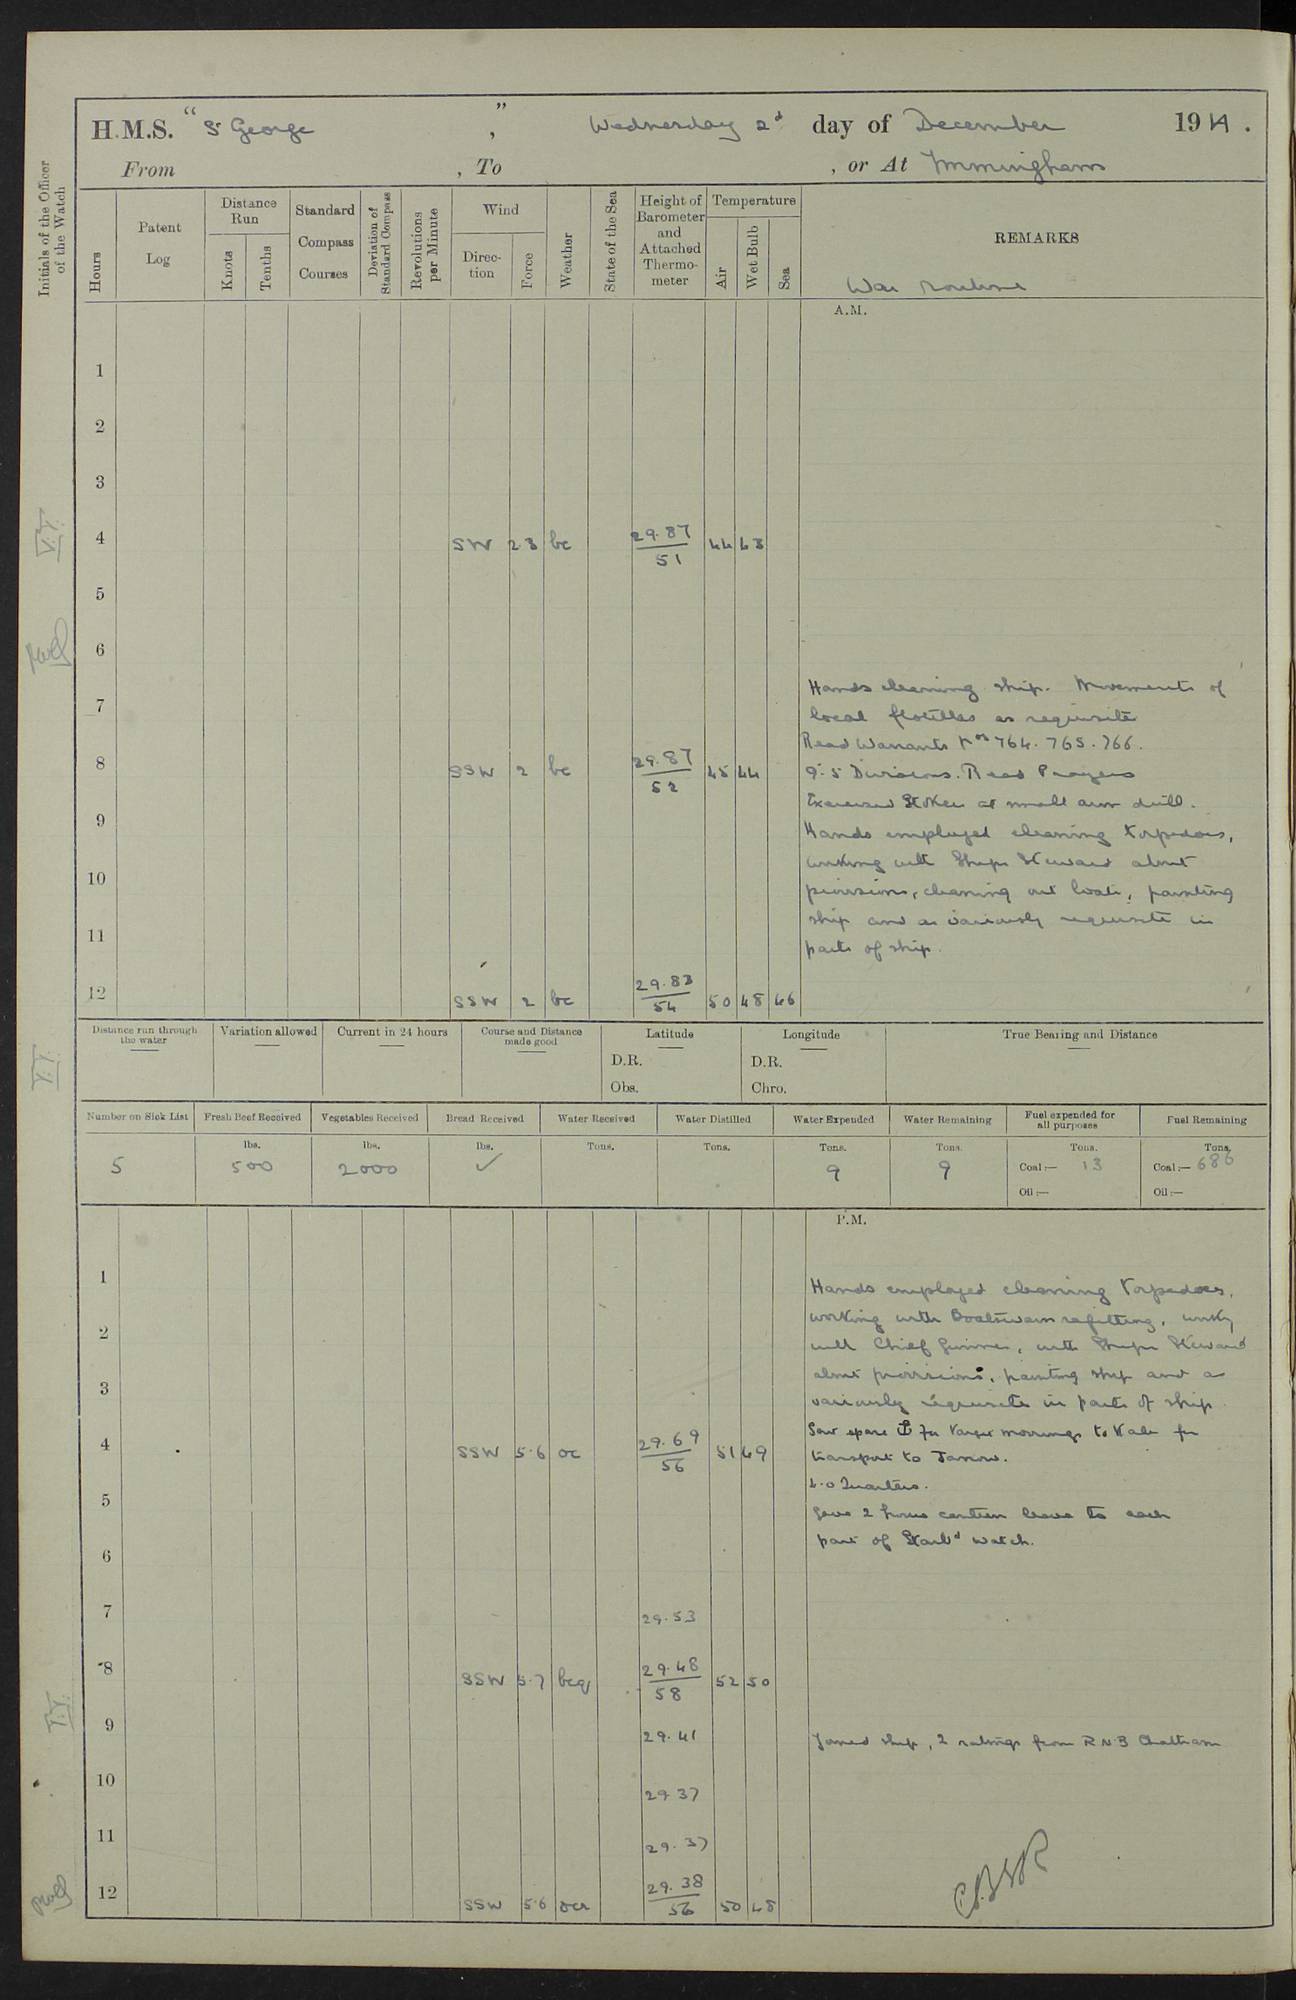 H.M.S. "St George", Wednesday 2d day of December 1914.
From , To , or At Immingham
Initials of the Officer of the Watch
Hours
Patent Log
Distance Run
Knots
Tenths
Standard Compass Courses
Deviation of Standard Compass
Revolutions per Minute
Wind
Direction
Force
Weather
State of the Sea
Height of Barometer and Attached Thermometer
Temperature
Air
Wet Bulb
Sea
REMARKS
War Routine
A.M.
1
2
3
4 SW 2 3 bc 29.87/51 44 43
5
6
Hands cleaning ship. Movements of
7
local flotillas as requisite
Read Warrants Nos 764. 765. 766.
8 SSW 2 bc 29.87/52 45 44
9.5 Divisions. Read Prayers
Exercised Stokers at small arm drill.
9
Hands employed cleaning torpedoes,
working with Ships Steward about
10
provisions, cleaning out boats, painting
ship and as variously requisite in
11
parts of ship.
12 SSW 2 bc 29.83/54 50 48 46
Distance run through the water
Variation allowed
Current in 24 hours
Course and Distance made good
Latitude
D.R.
Obs.
Longitude
D.R.
Chro.
True Bearing and Distance
Number on Sick List
Fresh Beef Received
Vegetables Received
Bread Received
Water Received
Water Distilled
Water Expended
Water Remaining
Fuel expended for all purposes
Fuel Remaining
lbs. lbs. lbs. Tons. Tons. Tons. Tons. Tons. Tons.
5 500 2000 ✓ 9 9 Coal:— 13 Coal:— 686
Oil:— Oil:—
P.M.
1
Hands employed cleaning Torpedoes,
working with Boatswain refitting, workg
2
with Chief Gunner, with Ships Steward
about provisions, painting ship and as
3
variously requisite in parts of ship.
spare ⚓ for Target moorings to for
4 SSW 5.6 oc 29.69/56 51 49
transport to Jarrow.
4.0 Quarters.
5
Gave 2 hours canteen leave to each
part of Starbd watch.
6
7 29.53
8 SSW 5.7 bcq 29.48/58 52 50
9 29.41
Joined ship, 2 ratings from R N B Chatham
10 29.37
11 29.37
12 SSW 5.6 ocr 29.38/56 50 48